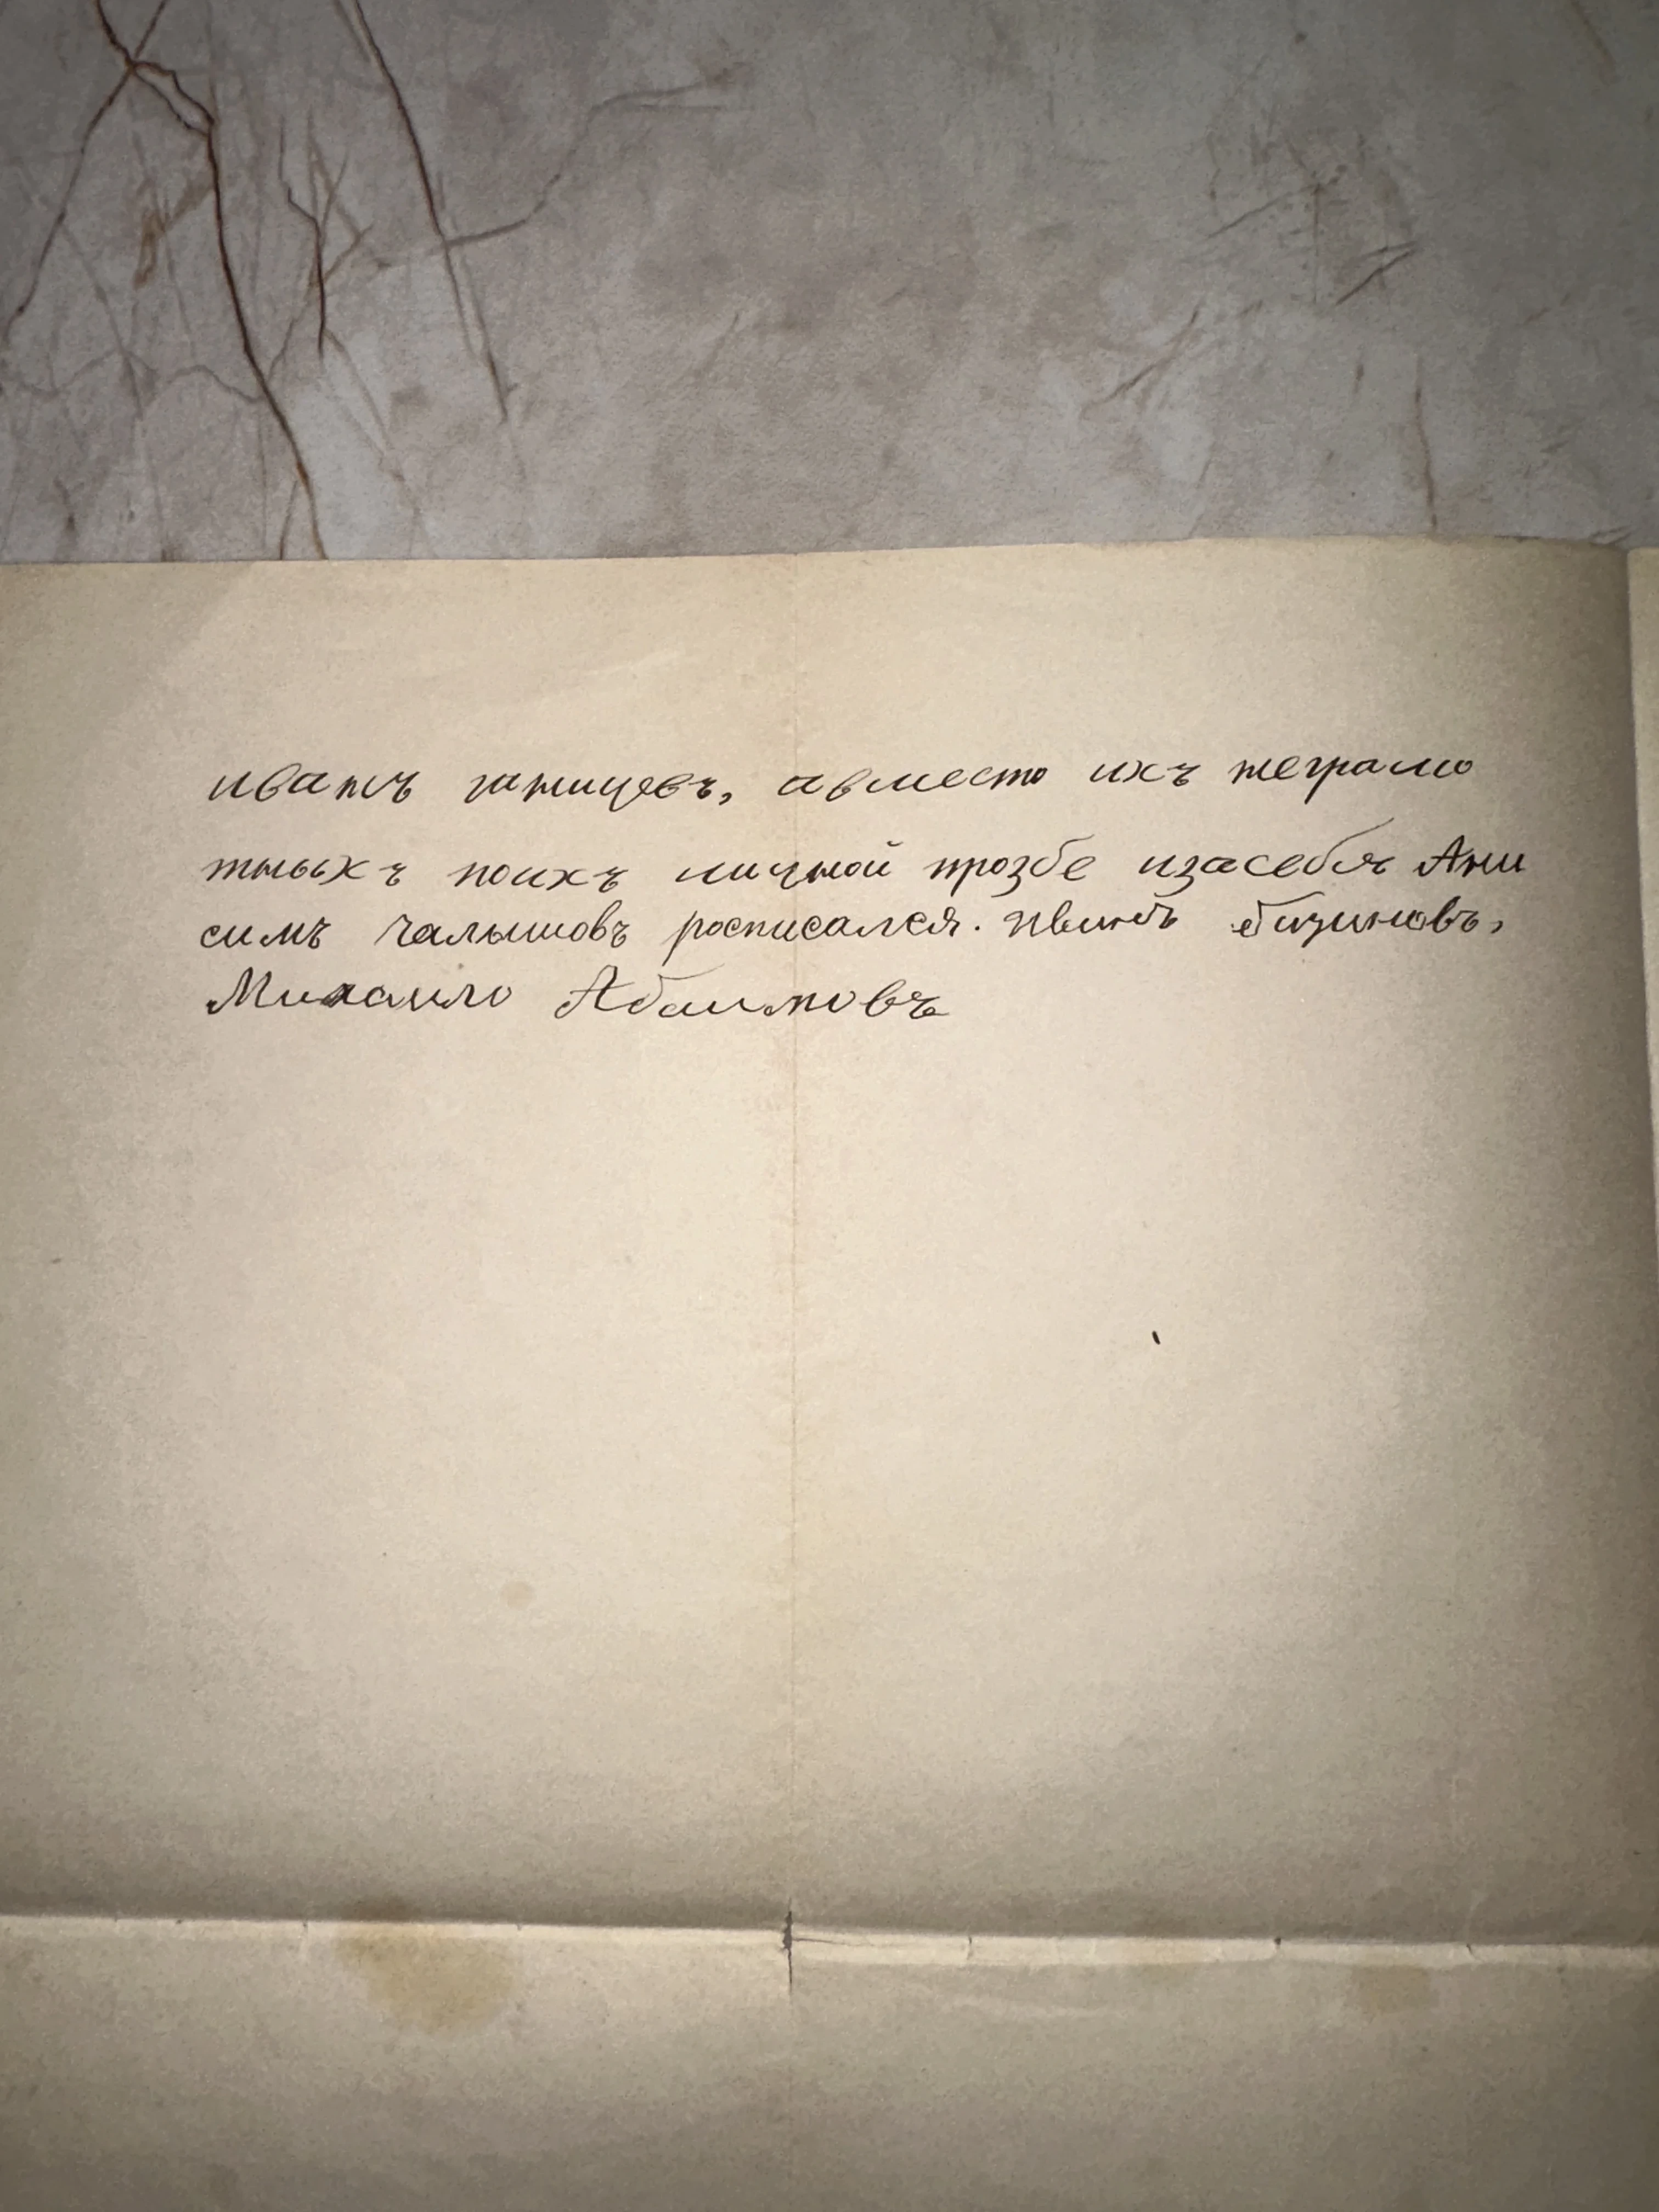 иванъ ганщевъ, авместо ихъ неграмо
тныхъ поихъ личной прозбе изасебя Ани
симъ Чалышовъ росписался.
Михаило Абаимовъ